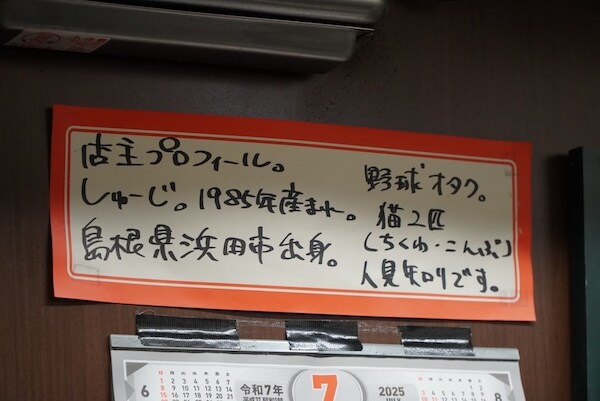 店主プロフィール。
しゅーじ。1985年産まれ。
島根県浜田市出身。
野球オタク。
猫2匹
(ちくわ・こんぶ)
人見知りです。
6
令和7年
7
2025
8